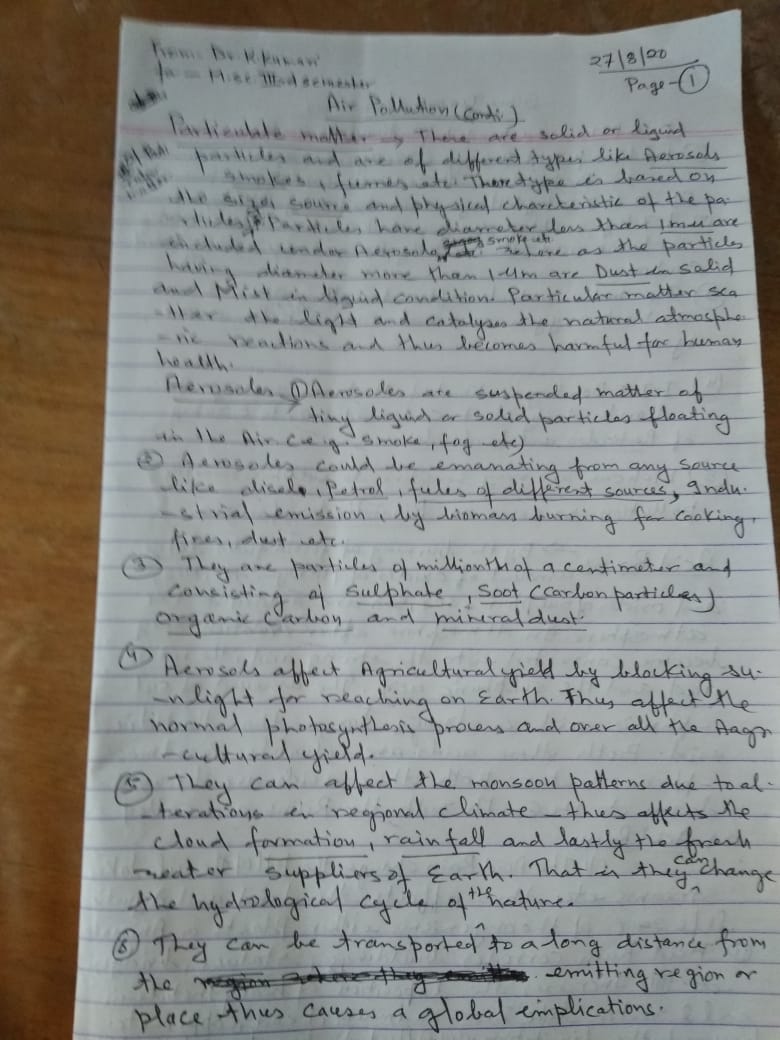 From: Dr. K. Kumari
27/8/20
To = M.sc IIIrd semester
Page-①
Air Pollution (Conti.)
Particulate matter → There are solid or liquid
particles and are of different types like Aerosols
smokes, fumes etc. There type is based on
the sizes source and physical charcteristic of the pa-
rticles. Particles have diameter less than 1mu are
included under Aerosols, smoke etc. where as the particles
having diameter more than 1 um are Dust in solid
and Mist in liquid condition. Particular matter sca
-tter the light and catalyses the natural atmosphe
-ric reactions and thus becomes harmful for human
health.
Aerosoles ① Aerosoles are suspended matter of
tiny liquid or solid particles floating
in the Air (e.g. smoke, fog etc)
② Aerosoles could be emanating from any source
like disele, Petrol, fules of different sources, Indu-
-strial emission, by biomass burning for cooking,
fires, dust etc.
③ They are particles of millionth of a centimeter and
consisting of Sulphate, Soot (carbon particles)
organic Carbon and mineral dust.
④ Aerosols affect Agricultural yield by blocking su-
-nlight for reaching on Earth. Thus affect the
normal photosynthesis process and over all the Aagri
-cultural yield.
⑤ They can affect the monsoon patterns due to al-
-terations in regional climate - thus affects the
cloud formation, rainfall and lastly the fresh
water suppliers of Earth. That is they can change
the hydrological cycle of the nature.
⑥ They can be transported to a long distance from
the emitting region or
place thus causes a global implications.